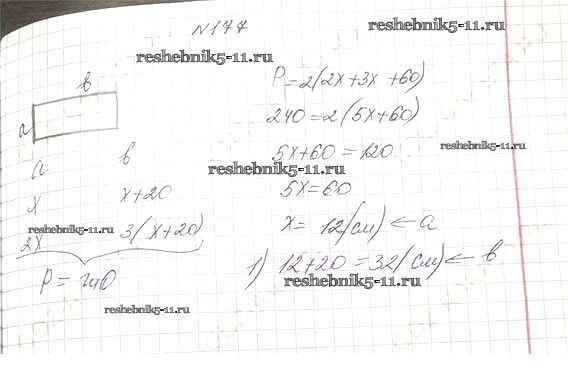 N177
reshebnik5-11.ru
reshebnik5-11.ru
в
а
а в
x x+20
2x 3(x+20)
reshebnik5-11.ru
P = 240
reshebnik5-11.ru
P=2(2x+3x+60)
240=2(5x+60)
5x+60=120
reshebnik5-11.ru
reshebnik5-11.ru
5x=60
x=12(см) ← a
1) 12+20=32(см) ← в
reshebnik5-11.ru